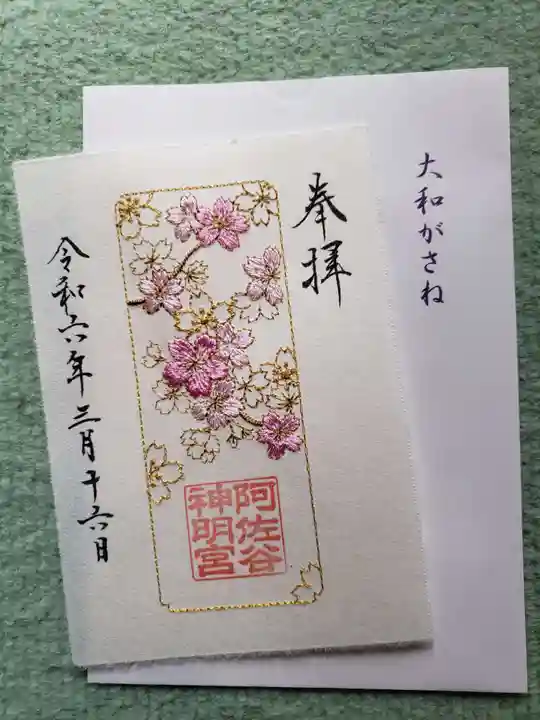 大和がさね
奉拝
阿佐谷
神明宮
令和六年三月十六日